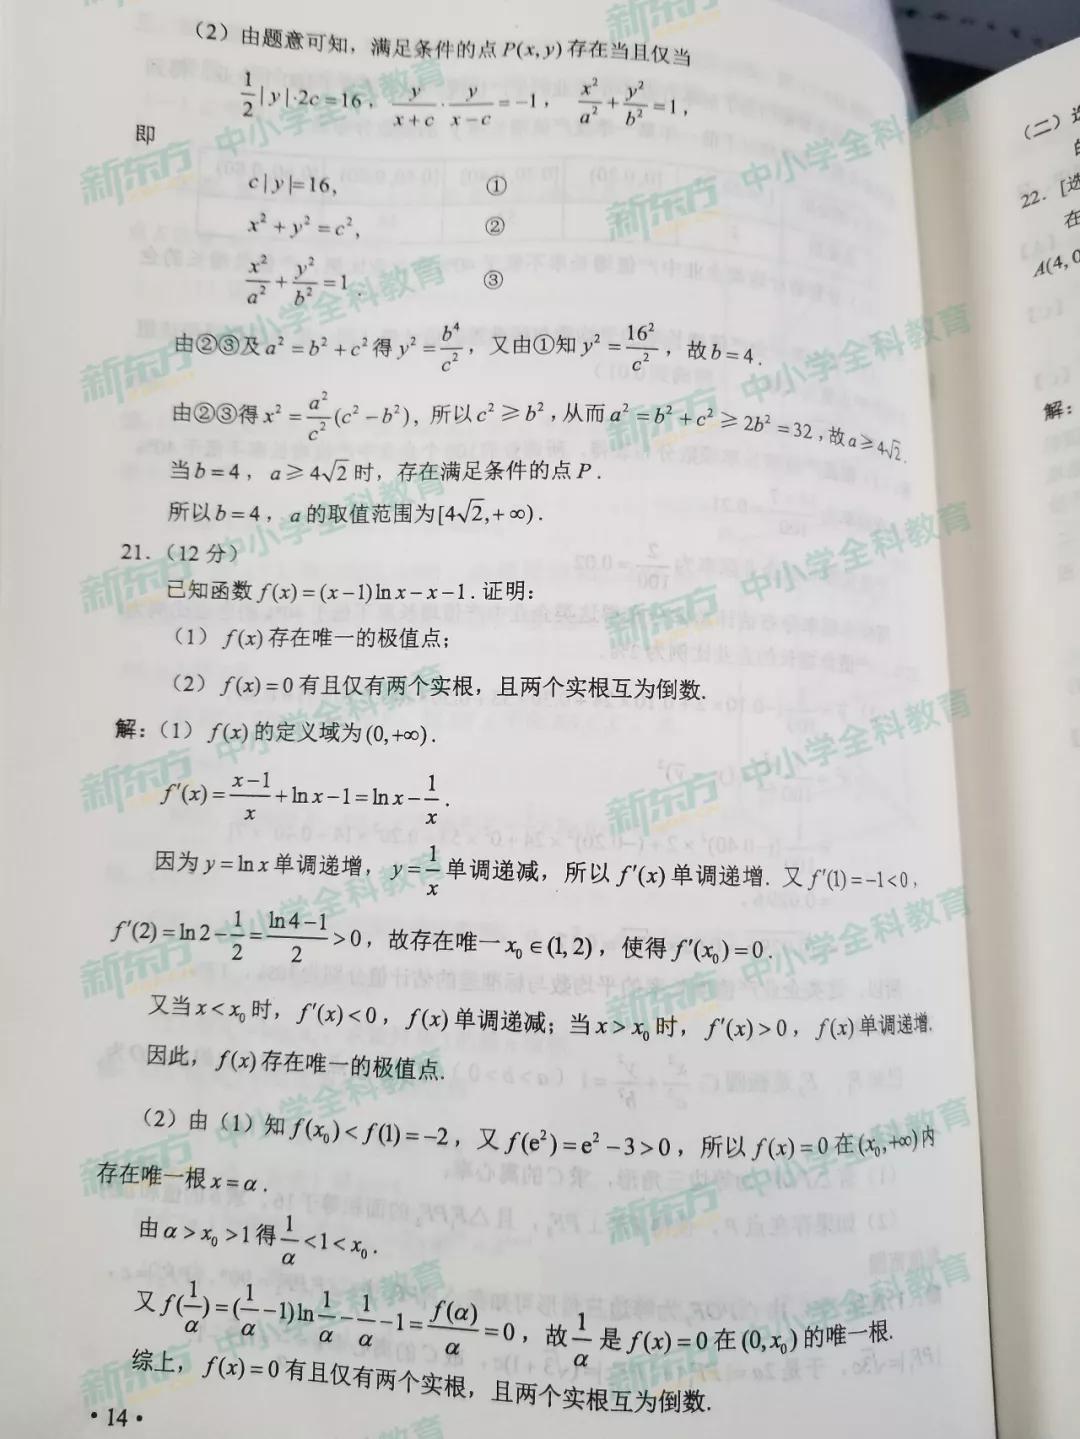 (2) 由题意可知，满足条件的点 P(x,y) 存在当且仅当
1/2|y|·2c=16， y/(x+c)·y/(x−c)=−1， x²/a²+y²/b²=1，
即
c|y|=16, ①
x²+y²=c², ②
x²/a²+y²/b²=1. ③
由②③及a²=b²+c²得y²=b⁴/c²，又由①知y²=16²/c²，故b=4.
由②③得x²=a²/c²(c²−b²)，所以c²≥b²,从而a²=b²+c²≥2b²=32,故a≥4√2.
当b=4，a≥4√2时，存在满足条件的点P.
所以b=4，a的取值范围为[4√2,+∞).
21.（12分）
已知函数f(x)=(x−1)lnx−x−1.证明:
（1）f(x)存在唯一的极值点;
（2）f(x)=0有且仅有两个实根，且两个实根互为倒数.
解:（1）f(x)的定义域为(0,+∞).
f′(x)=(x−1)/x+lnx−1=lnx−1/x.
因为y=lnx单调递增，y=1/x单调递减，所以f′(x)单调递增. 又f′(1)=−1<0,
f′(2)=ln2−1/2=(ln4−1)/2>0，故存在唯一x₀∈(1,2)，使得f′(x₀)=0.
又当x<x₀时，f′(x)<0，f(x)单调递减；当x>x₀时，f′(x)>0，f(x)单调递增.
因此，f(x)存在唯一的极值点.
（2）由（1）知f(x₀)<f(1)=−2，又f(e²)=e²−3>0，所以f(x)=0在(x₀,+∞)内
存在唯一根x=α.
由α>x₀>1得1/α<1<x₀.
又f(1/α)=(1/α−1)ln1/α−1/α−1=f(α)/α=0，故1/α是f(x)=0在(0,x₀)的唯一根.
综上，f(x)=0有且仅有两个实根，且两个实根互为倒数.
·14·
（二）选
22.［选
在
A(4,0
解:
新东方 中小学全科教育